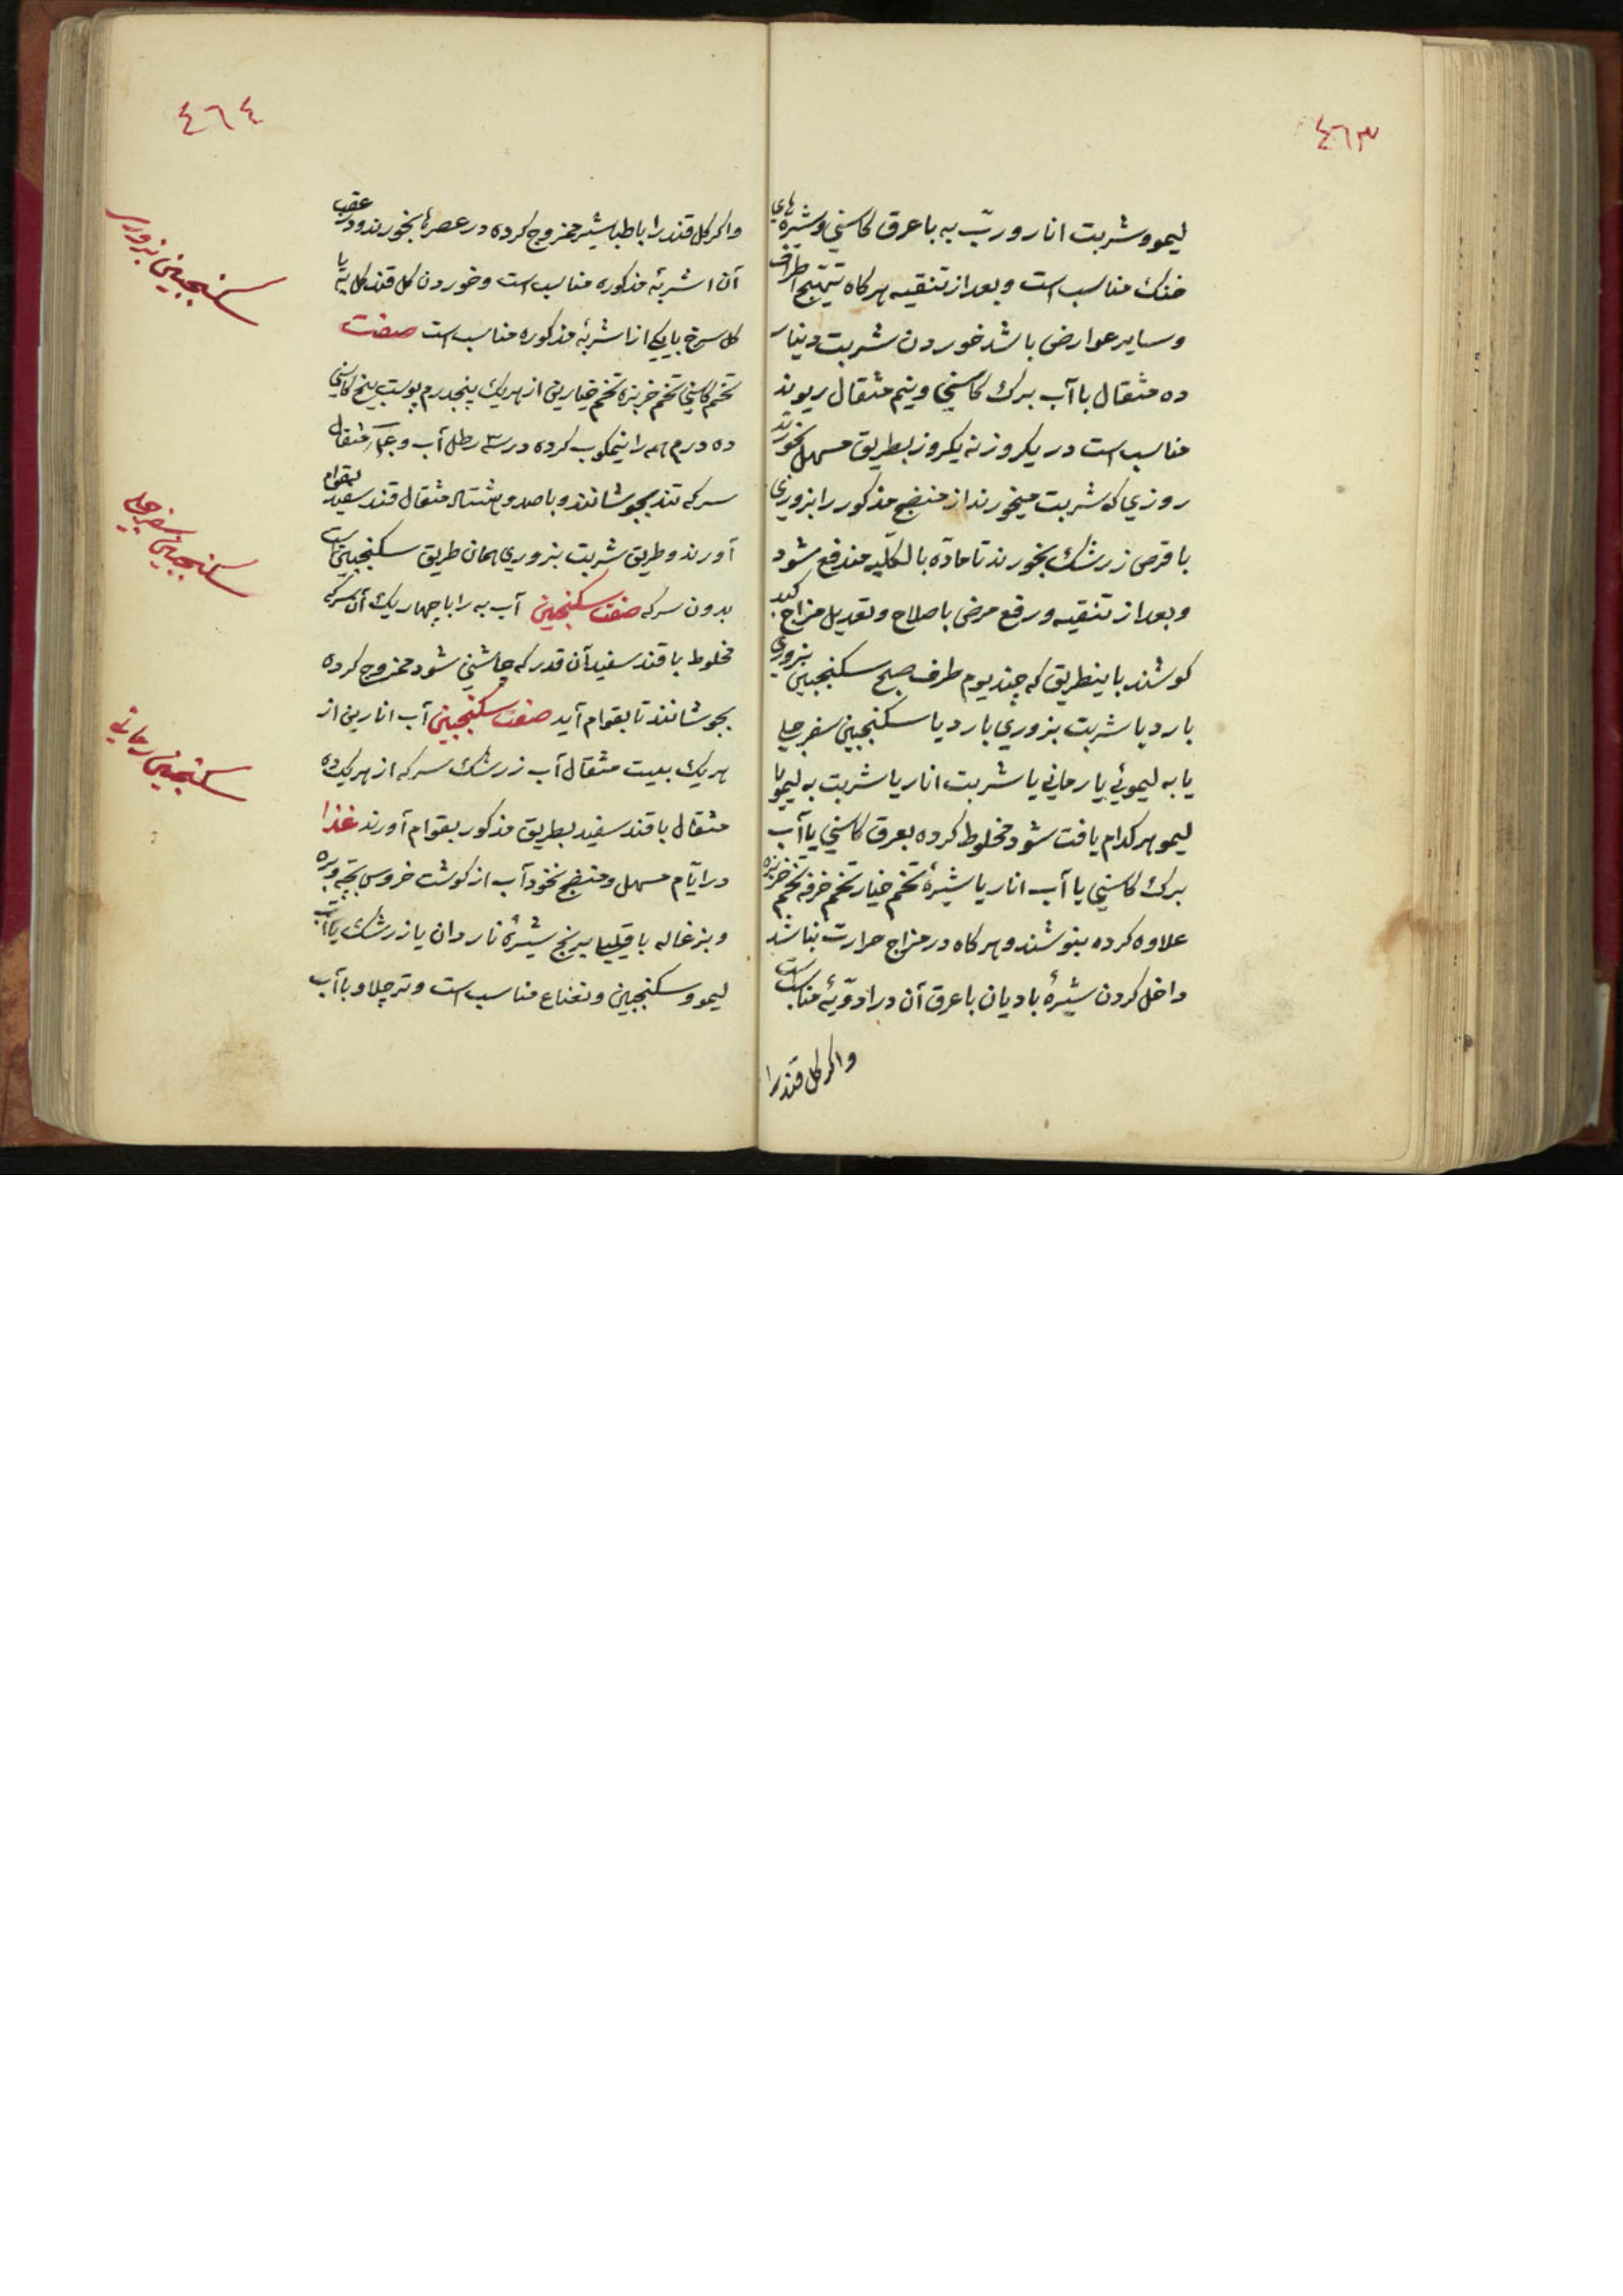 ٤٦٣
ليمو وشربت انار وربّ به با عرق كاسني وشيرهاي
خنك مناسب است وبعد از تنقيه هركاه تهبّج اطراف
وساير عوارض باشد خوردن شربت دينار
ده مثقال با آب برك كاسني ونيم مثقال ريوند
مناسب است در يكروز نه يكروز بطريق مسهل بخورند
روزي كه شربت ميخورند از منضج مذكور را بزوري
با قرص زرشك بخورند تا مادّه بالكليّه مندفع شود
وبعد از تنقيه ورفع مرض باصلاح وتعديل مزاج كبد
كوشند باينطريق كه چند يوم طرف صبح سكنجبين بزوري
بارد يا شربت بزوري بارد يا سكنجبين سفرجلي
يا به ليموئي يا رماني يا شربت انار يا شربت به ليمو يا
ليمو هر كدام يافت شود مخلوط كرده بعرق كاسني يا آب
برك كاسني يا آب انار يا شيرهٔ تخم خيار تخم خرفه تخم خربزه
علاوه كرده بنوشند وهركاه در مزاج حرارت نباشد
داخل كردن شيرهٔ باديان با عرق آن در ادويّهٔ مناسب است
واكر كل قند را
٤٦٤
واكر كل قند را با طباشير ممزوج كرده در عصرها بخورند ودر عقب
آن اشربهٔ مذكوره مناسب است وخوردن كل قند كل به يا
كل سرخ با يكي از اشربهٔ مذكوره مناسب است صفت
سكنجبين بزوري
تخم كاسني تخم خربزه تخم خيارين از هر يك پنجدرم پوست بيخ كاسني
ده درم همه را نيمكوب كرده در سه رطل آب و مثقال
سركه تند بجوشانند وبا صد وهشتاد مثقال قند سفيد بقوام
آورند وطريق شربت بزوري همان طريق سكنجبين است
بدون سركه صفت سكنجبين آب به را با چهار يك آن سركه
سكنجبين سفرجلي
مخلوط با قند سفيد آن قدر كه چاشني شود ممزوج كرده
بجوشانند تا بقوام آيد صفت سكنجبين آب انارين از
سكنجبين رماني
هر يك بيست مثقال آب زرشك سركه از هر يك ده
مثقال با قند سفيد بطريق مذكور بقوام آورند غذا
در ايّام مسهل ومنضج نخود آب از كوشت خروس بچّه وبره
وبزغاله با برنج شيرهٔ ناردان يا زرشك يا آب
ليمو وسكنجبين ونعناع مناسب است وتر چلاو با آب